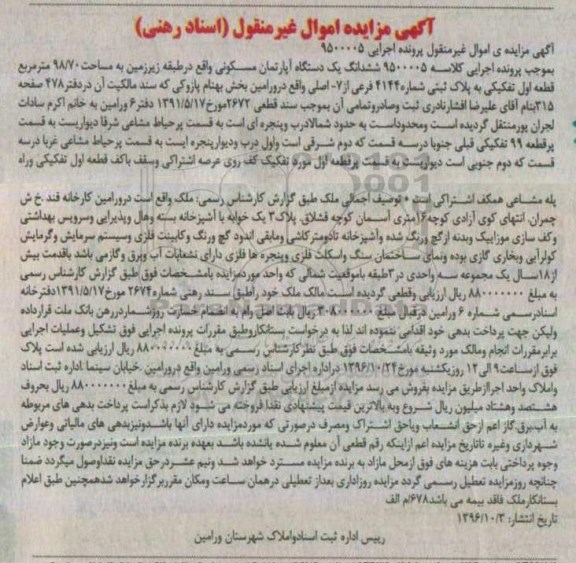 آگهی مزایده اموال غیرمنقول (اسناد رهنی)
آگهی مزایده ی اموال غیرمنقول پرونده اجرایی ۹۵۰۰۰۰۵
بموجب پرونده اجرایی کلاسه ۹۵۰۰۰۰۵ ششدانگ یک دستگاه آپارتمان مسکونی واقع درطبقه زیرزمین به مساحت۹۸/۷۰ مترمربع
قطعه اول تفکیکی به پلاک ثبتی شماره ۴۱۴۴ فرعی از۷- اصلی واقع درورامین بخش بهنام پازوکی که سند مالکیت آن دردفتر۴۷۸ صفحه
۳۱۵بنام آقای علیرضا افشارنادری ثبت وصادروتمامی آن بموجب سند قطعی ۲۶۷۲مورخ۱۳۹۱/۵/۱۷ دفتر۶ ورامین به خانم اکرم سادات
لجران پورمنتقل گردیده است ومحدوداست به حدود شمالادرب وپنجره ای است به قسمت پرحیاط مشاعی شرقا دیواریست به قسمت
پرقطعه ۹۹ تفکیکی قبلی جنوبا درسه قسمت که دوم شرقی است واول درب ودیوارپنجره ایست به قسمت پرحیاط مشاعی غربا درسه
قسمت که دوم جنوبی است دیواریست به قسمت پرقطعه اول مورد تفکیک کف روی عرصه اشتراکی وسقف باکف قطعه اول تفکیکی وراه
پله مشاعی همکف اشتراکی است • توصیف اجمالی ملک طبق گزارش کارشناس رسمی: ملک واقع است درورامین کارخانه قند .خ ش
چمران. انتهای کوی آزادی کوچه۱۶متری آسمان کوچه قشلاق. پلاک۳ یک خوابه با آشپزخانه بسته وهال وپذیرایی وسرویس بهداشتی
وکف سازی موزاییک وبدنه ازگچ ورنگ شده وآشپزخانه تادومترکاشی ومابقی اندود گچ ورنگ وکابینت فلزی وسیستم سرمایش وگرمایش
کولرآبی وبخاری گازی بوده ونمای ساختمان سنگ واسکلت فلزی وپنجره ها فلزی دارای نشعابات آب وبرق وگازمی باشد باقدمت بیش
از۱۸سال یک مجموعه سه واحدی در۳طبقه باموقعیت شمالی که واحد موردمزایده بامشخصات فوق طبق گزارش کارشناس رسمی
به مبلغ ۸۸۰۰۰۰۰۰۰ ریال ارزیابی وقطعی گردیده است مالک ملک خود راطبق سند رهنی شماره ۲۶۷۴ مورخ۱۳۹۱/۵/۱۷دفترخانه
اسنادرسمی شماره ۶ ورامین درقبال مبلغ ریال بابت اصل وام به انضمام خسارت روزشماردررهن بانک ملت قرارداده
ولیکن جهت پرداخت بدهی خود اقدامی ننموده اند لذا به درخواست بستانکارطبق مقررات پرونده اجرایی فوق تشکیل وعملیات اجرایی
برابرمقررات انجام ومالک مورد وثیقه بامشخصات فوق طبق نظرکارشناس رسمی به مبلغ ۸۸۰۰۰۰۰۰۰ ریال ارزیابی شده است پلاک
فوق ازساعت۹ الی۱۲ روزیکشنبه مورخ۱۳۹۶/۱۰/۲۴ دراداره اجرای اسناد رسمی ورامین واقع درورامین .خیابان سینما.اداره ثبت اسناد
واملاک واحد اجراازطریق مزایده بفروش می رسد مزایده ازمبلغ ارزیابی طبق گزارش کارشناس رسمی به مبلغ ۸۸۰۰۰۰۰۰۰ ریال بحروف
هشتصد وهشتاد میلیون ریال شروع وبه بالاترین قیمت پیشنهادی نقدا فروخته می شود لازم بذکراست پرداخت بدهی های مربوطه
به آب،برق،گاز اعم ازحق انشعاب ویاحق اشتراک ومصرف درصورتی که موردمزایده دارای آنها باشدونیزبدهی های مالیاتی وعوارض
شهرداری وغیره تاتاریخ مزایده اعم ازاینکه رقم قطعی آن معلوم شده یانشده باشد بعهده برنده مزایده است ونیزدرصورت وجود مازاد
وجوه پرداختی بابت هزینه های فوق ازمحل مازاد به برنده مزایده مسترد خواهد شد ونیم عشردرحق مزایده نقداوصول میگردد ضمنا
چنانچه روزمزایده تعطیل رسمی گردد مزایده روزاداری بعداز تعطیلی درهمان ساعت ومکان مقرربرگزارخواهد شدهمچنین طبق اعلام
بستانکارملک فاقد بیمه می باشد۶۷۸/م الف
تاریخ انتشار: ۱۳۹۶/۱۰/۳
رییس اداره ثبت اسنادواملاک شهرستان ورامین